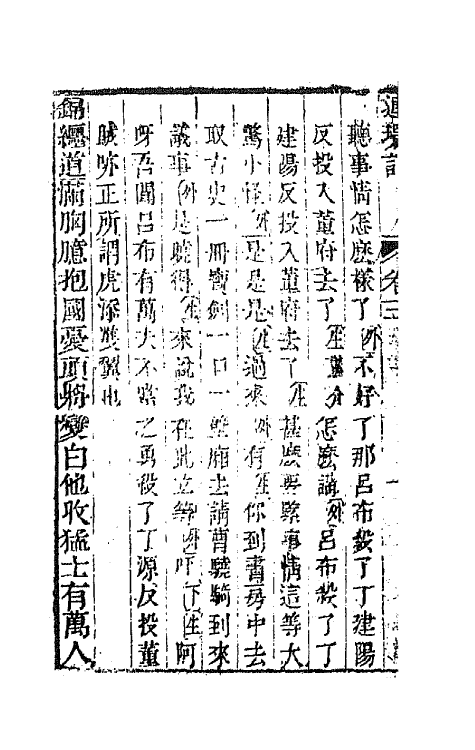 連環記
卷上
聽事情怎麽樣了外不好了那呂布殺了丁建陽
反投入董府去了生 怎麽講外呂布殺了丁
建陽反投入董府去了生甚麽要緊事情這等大
驚小怪外是是是生過來外有生你到書房中去
取古史一冊寶劍一口一壁廂去請曹驍騎到來
議事外是曉得生來說我在此立等外吓下生阿
呀吾聞呂布有萬夫不當之勇殺了丁源反投董
賊 正所謂虎添雙翼也
錦纏道滿胸臆抱國憂頭將變白他收猛士有萬人